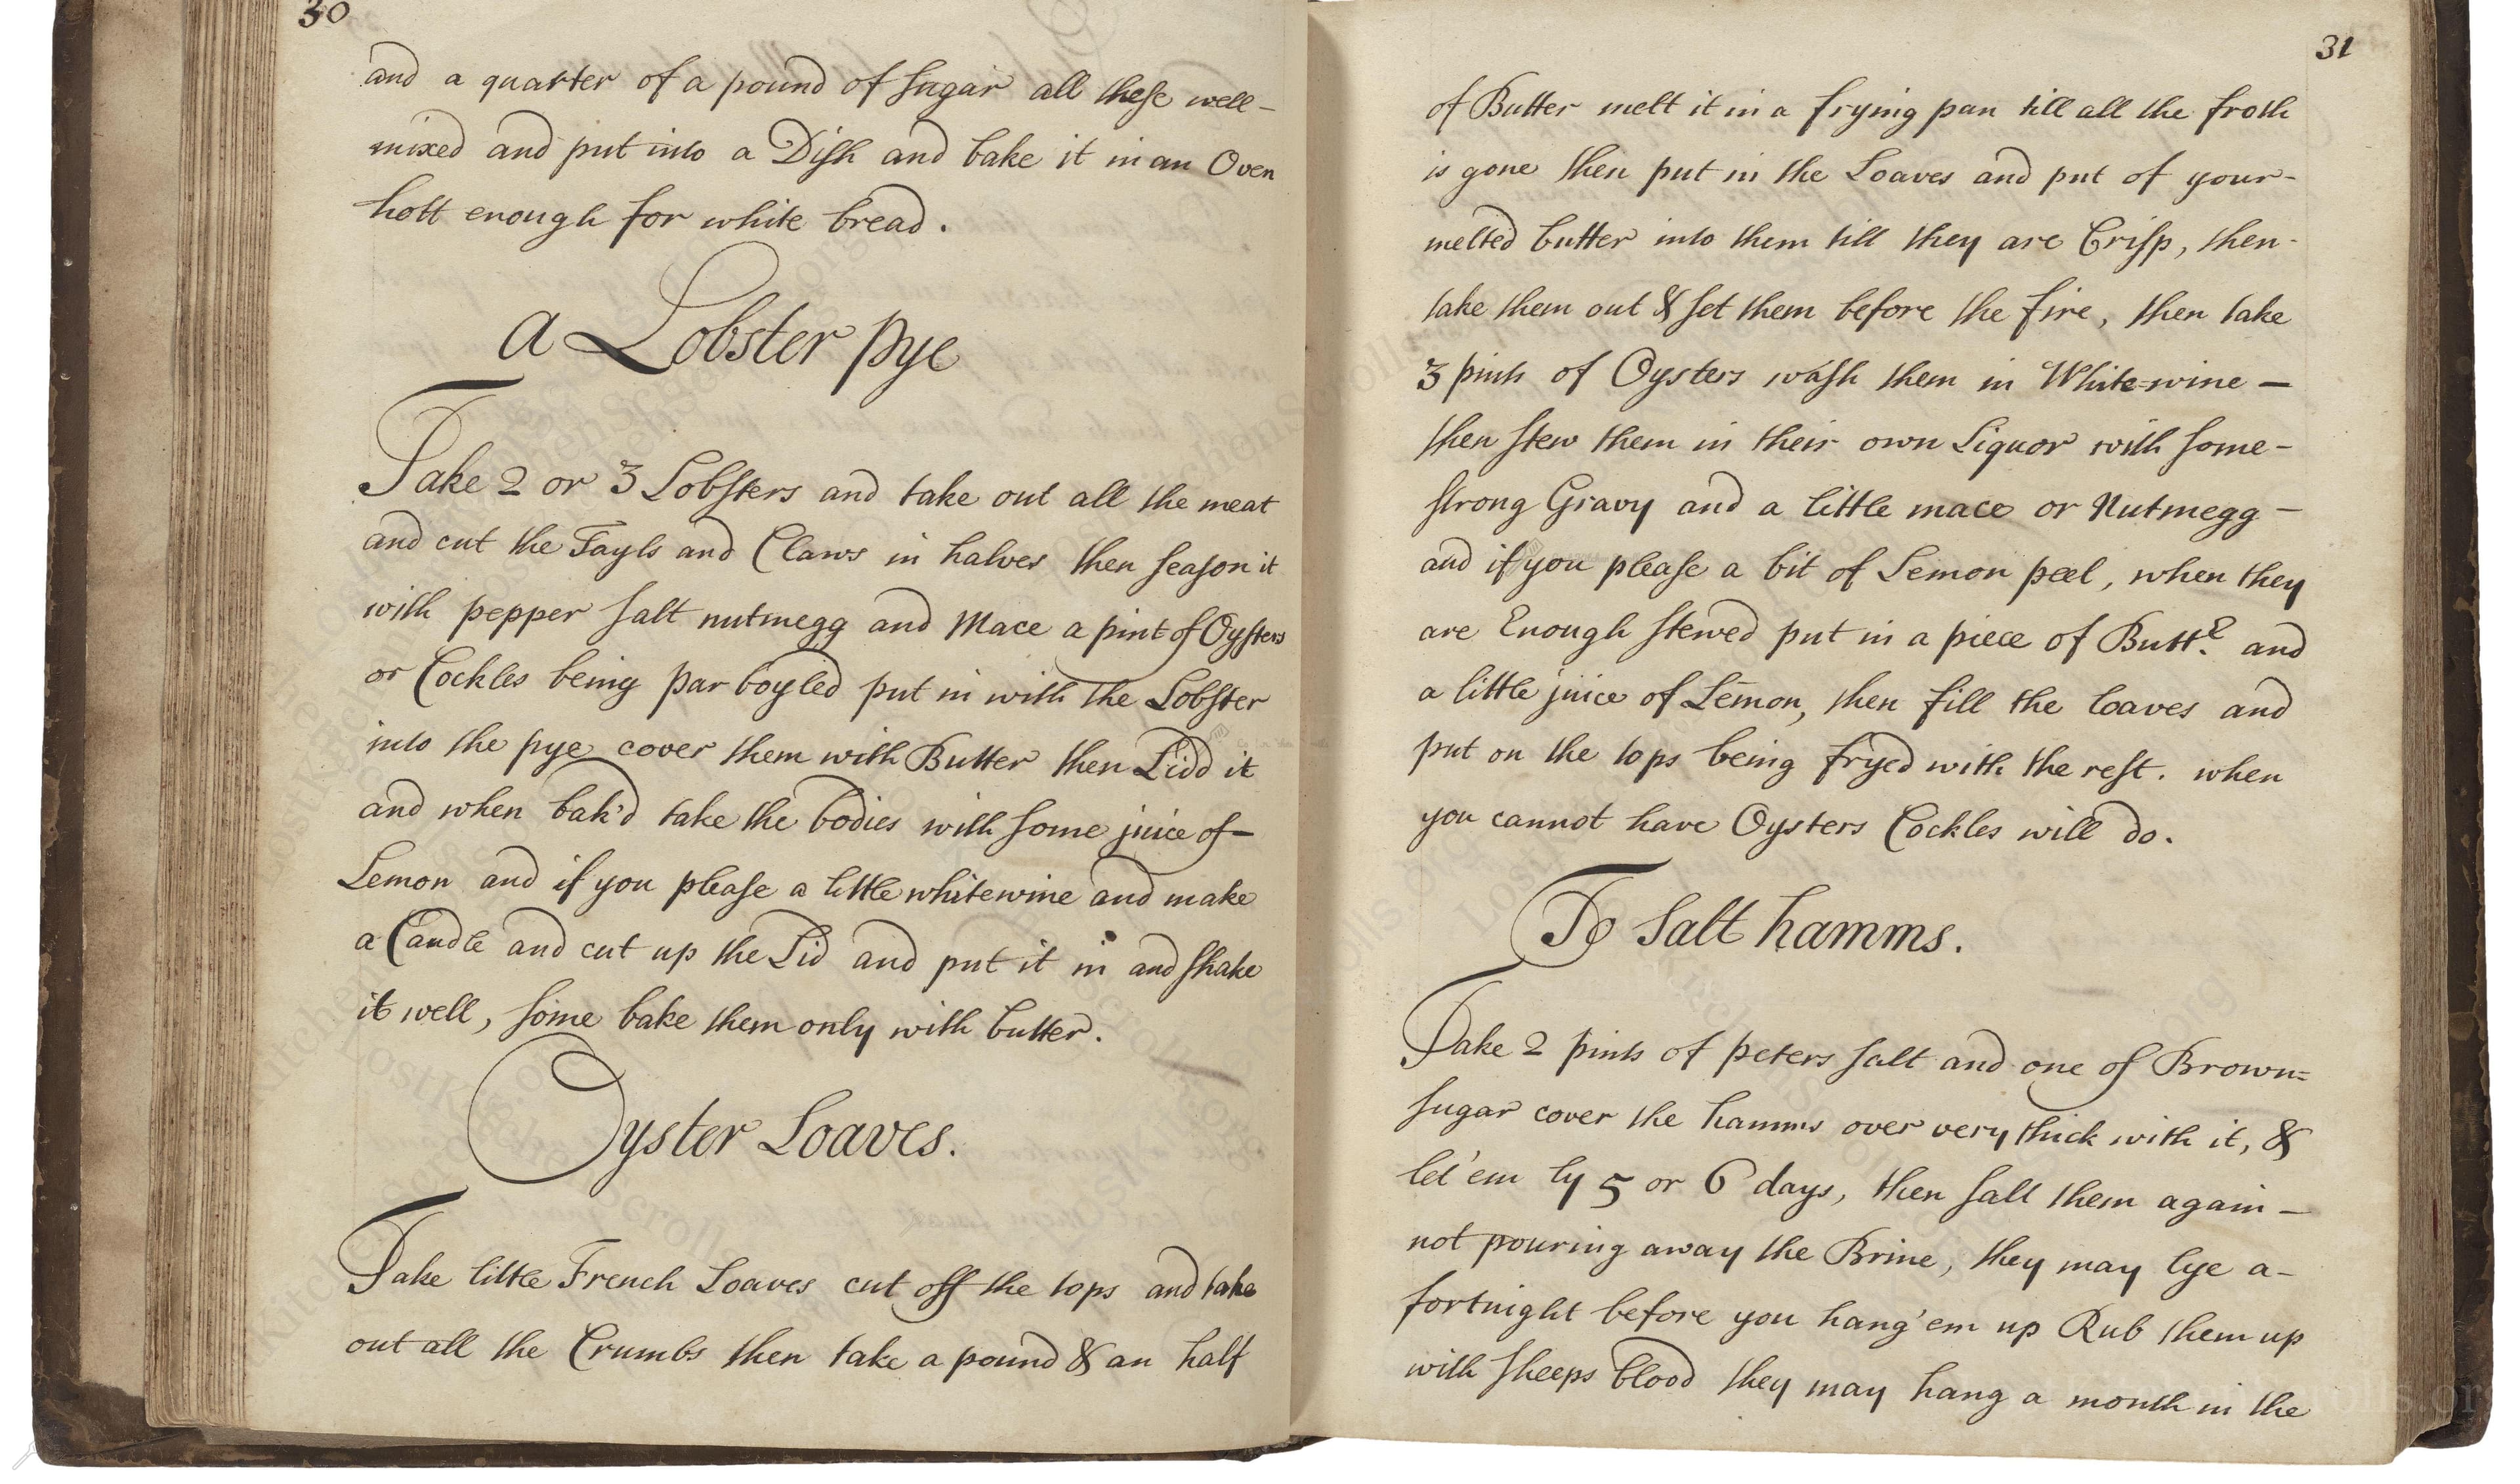 30
and a quarter of a pound of sugar all these well-
mixed and put into a Dish and bake it in an Oven
hott enough for white bread.
a Lobster pye
Take 2 or 3 Lobsters and take out all the meat
and cut the Tayls and Claws in halves then season it
with pepper salt nutmegg and Mace a pint of Oysters
or Cockles being par boyled put in with the Lobster
into the pye cover them with Butter then Lidd it
and when bak'd take the bodies with some juice of-
Lemon and if you please a little whitewine and make
a Caudle and cut up the Lid and put it in and shake
it well, some bake them only with butter.
Oyster Loaves.
Take little French Loaves cut off the tops and take
out all the Crumbs then take a pound & an half
31
of Butter melt it in a frying pan till all the froth
is gone then put in the Loaves and put of your-
melted butter into them till they are Crisp, then-
take them out & set them before the fire, then take
3 pints of Oysters wash them in White=wine-
then stew them in their own Liquor with some-
strong Gravy and a little mace or Nutmegg-
and if you please a bit of Lemon peel, when they
are Enough stewed put in a piece of Butt.r and
a little juice of Lemon, then fill the loaves and
put on the tops being fryed with the rest. when
you cannot have Oysters Cockles will do.
To salt hamms.
Take 2 pints of peters salt and one of Brown=
sugar cover the hamms over very thick with it, &
let'em ly 5 or 6 days, then salt them again-
not pouring away the Brine, they may lye a-
fortnight before you hang'em up Rub them up
with sheeps blood they may hang a month in the